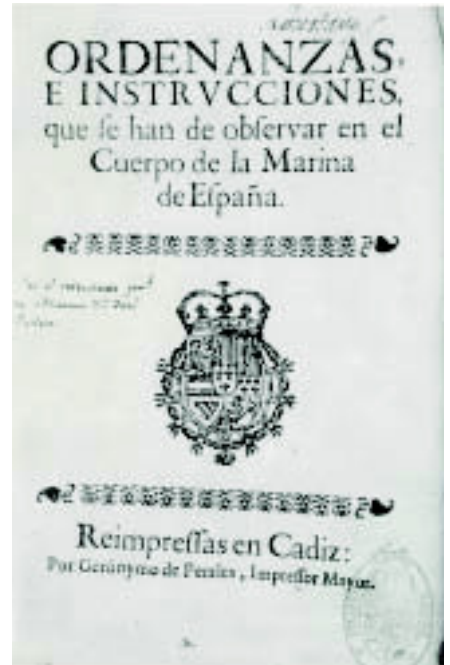 ORDENANZAS,
E INSTRVCCIONES,
que ſe han de obſervar en el
Cuerpo de la Marina
de Eſpaña.
Reimpreſſas en Cadiz:
Por Geronymo de Peralta, Impreſſor Mayor.